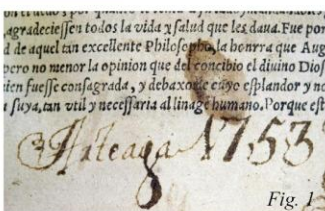 agradeciessen todos la vida y salud que les daua. Fue por
d de aquel tan excellente Philosopho, la honrra que Aug
pero no menor la opinion que del concibio el diuino Dios
ien fuesse consagrada, y debaxo de cuyo esplandor y no
a suya, tan vtil y necessaria al linage humano. Porque est
Arteaga 1753
Fig. 1